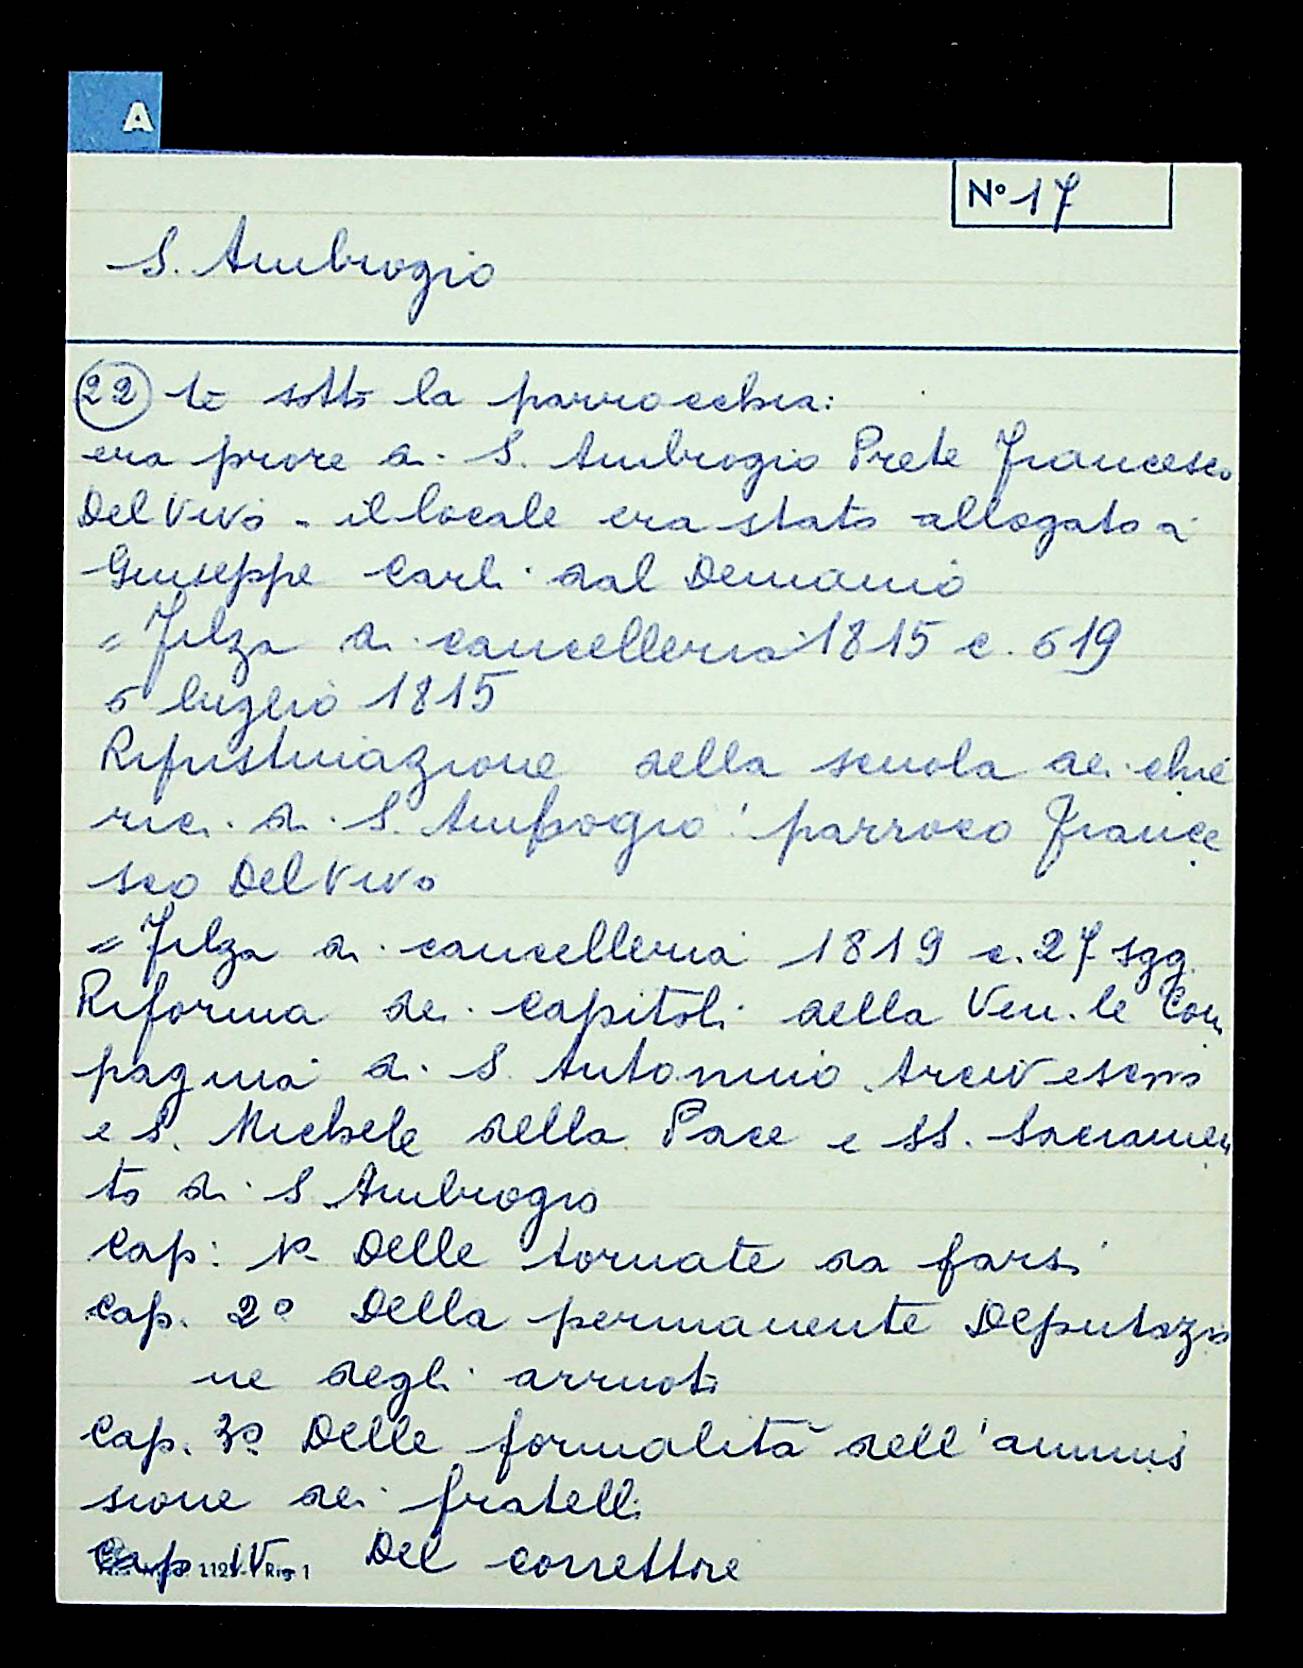 A
N° 17
S. Ambrogio
22 te sotto la parrocchia:
era priore di S. Ambrogio Prete Francesco
Del Vivo - il locale era stato allogato a
Giuseppe Carli dal Demanio
= Filza di cancelleria 1815 c. 619
6 luglio 1815
Ripristinazione della scuola dei chie
rici di S. Ambrogio: parroco France
sco Del Vivo
= Filza di cancelleria 1819 c. 27 sgg.
Riforma dei capitoli della Ven.le Com
pagnia di S. Antonino Arcivescovo
e S. Michele della Pace e SS. Sacramen
to di S. Ambrogio
Cap: 1° Delle tornate da farsi
Cap. 2° Della permanente Deputazio
ne degli arruoti
Cap. 3° Delle formalità dell'ammis
sione dei fratelli
Cap IV Del correttore